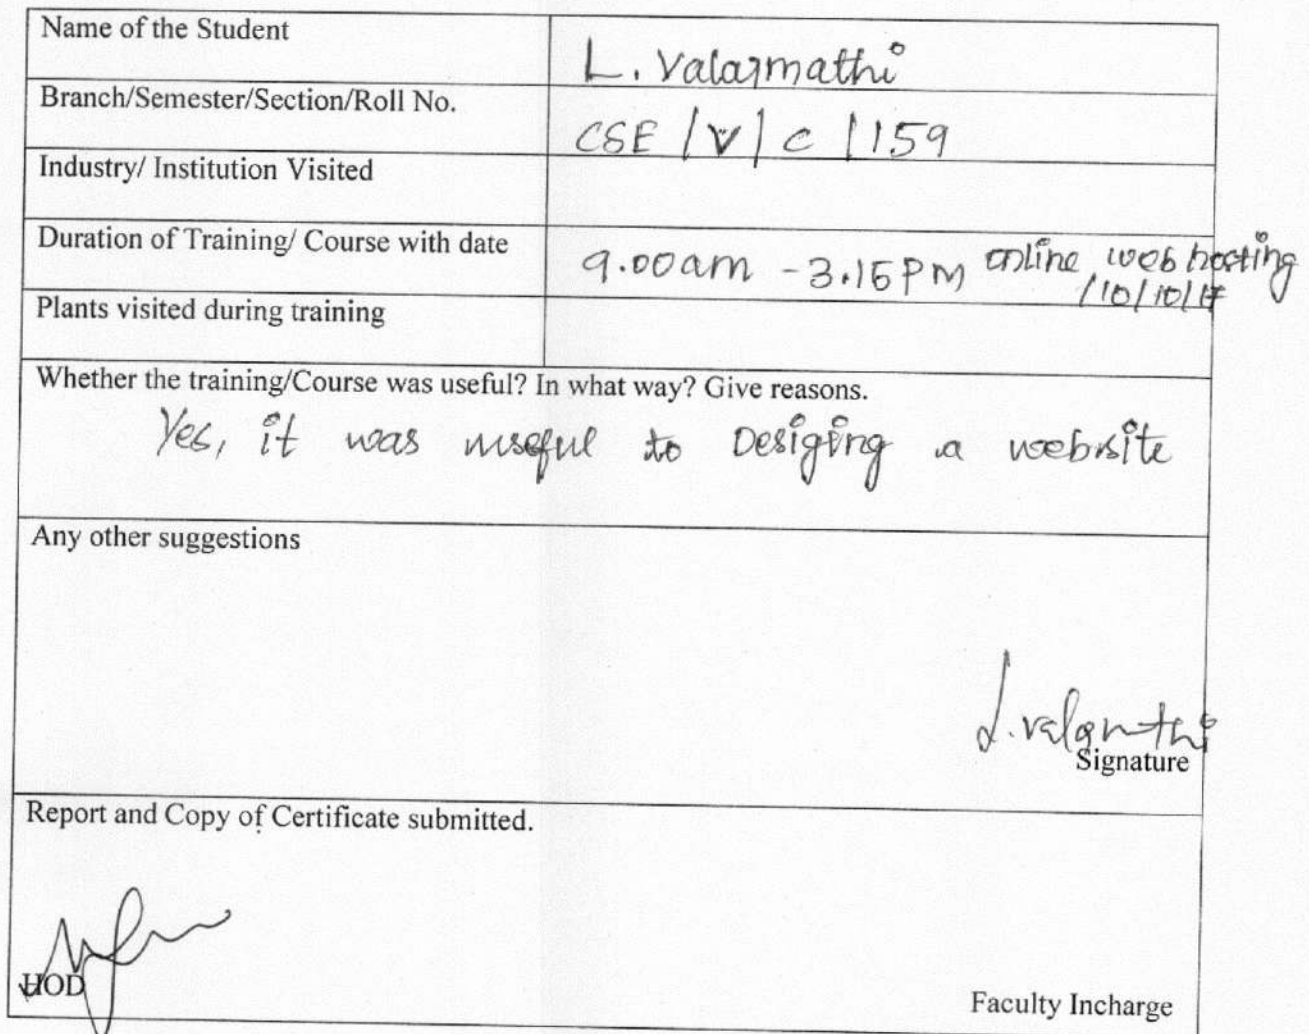 Name of the Student
L. Valarmathi
Branch/Semester/Section/Roll No.
CSE / V / C / 159
Industry/ Institution Visited
Duration of Training/ Course with date
9.00am - 3.15PM online web hosting
/10/10/17
Plants visited during training
Whether the training/Course was useful? In what way? Give reasons.
Yes, it was useful to Desiging a website
Any other suggestions
L. Valarmthi
Signature
Report and Copy of Certificate submitted.
HOD
Faculty Incharge